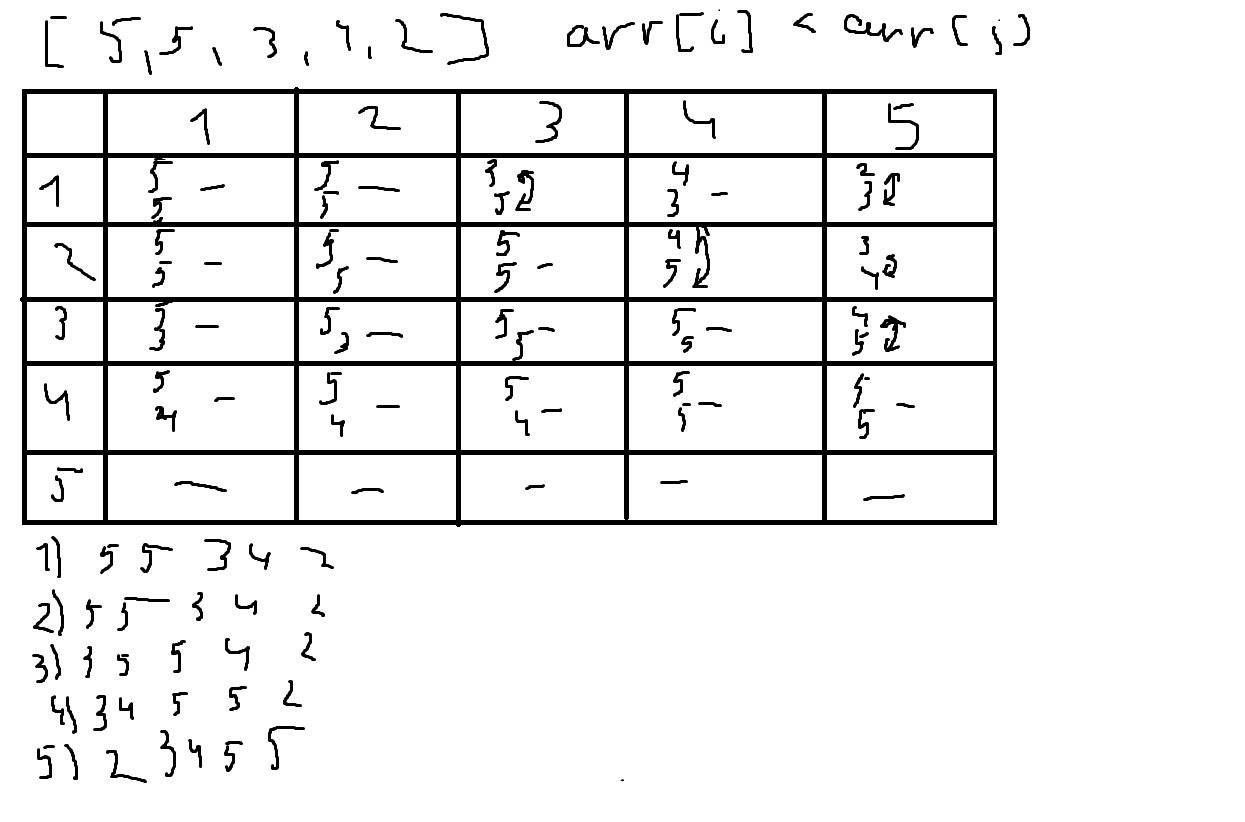 [ 5, 5, 3, 4, 2 ] arr[i] < arr[j]
1 2 3 4 5
1 5 5 – 5 5 – 3 5 4 3 – 2 3
2 5 5 – 5 5 – 5 5 – 4 5 3 4
3 5 3 – 5 3 – 5 5 – 5 5 – 4 5
4 5 4 – 5 4 – 5 4 – 5 5 – 5 5 –
5 – – – – –
1) 5 5 3 4 2
2) 5 5 3 4 2
3) 3 5 5 4 2
4) 3 4 5 5 2
5) 2 3 4 5 5